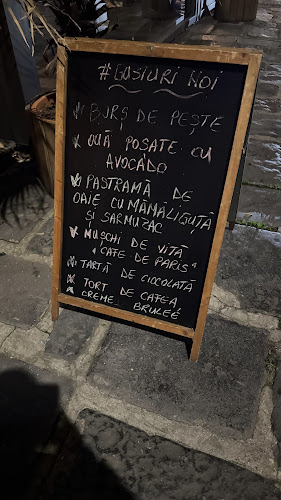 #GUSTURI NOI
BORȘ DE PEȘTE
OUĂ POȘATE CU
AVOCADO
PASTRAMĂ DE
OAIE CU MĂMĂLIGUȚĂ
ȘI SARMUZAC
MUSCHI DE VITĂ
"CAFE DE PARIS"
TARTĂ DE CIOCOLATĂ
TORT DE CAFEA
CREME BRULEÉ